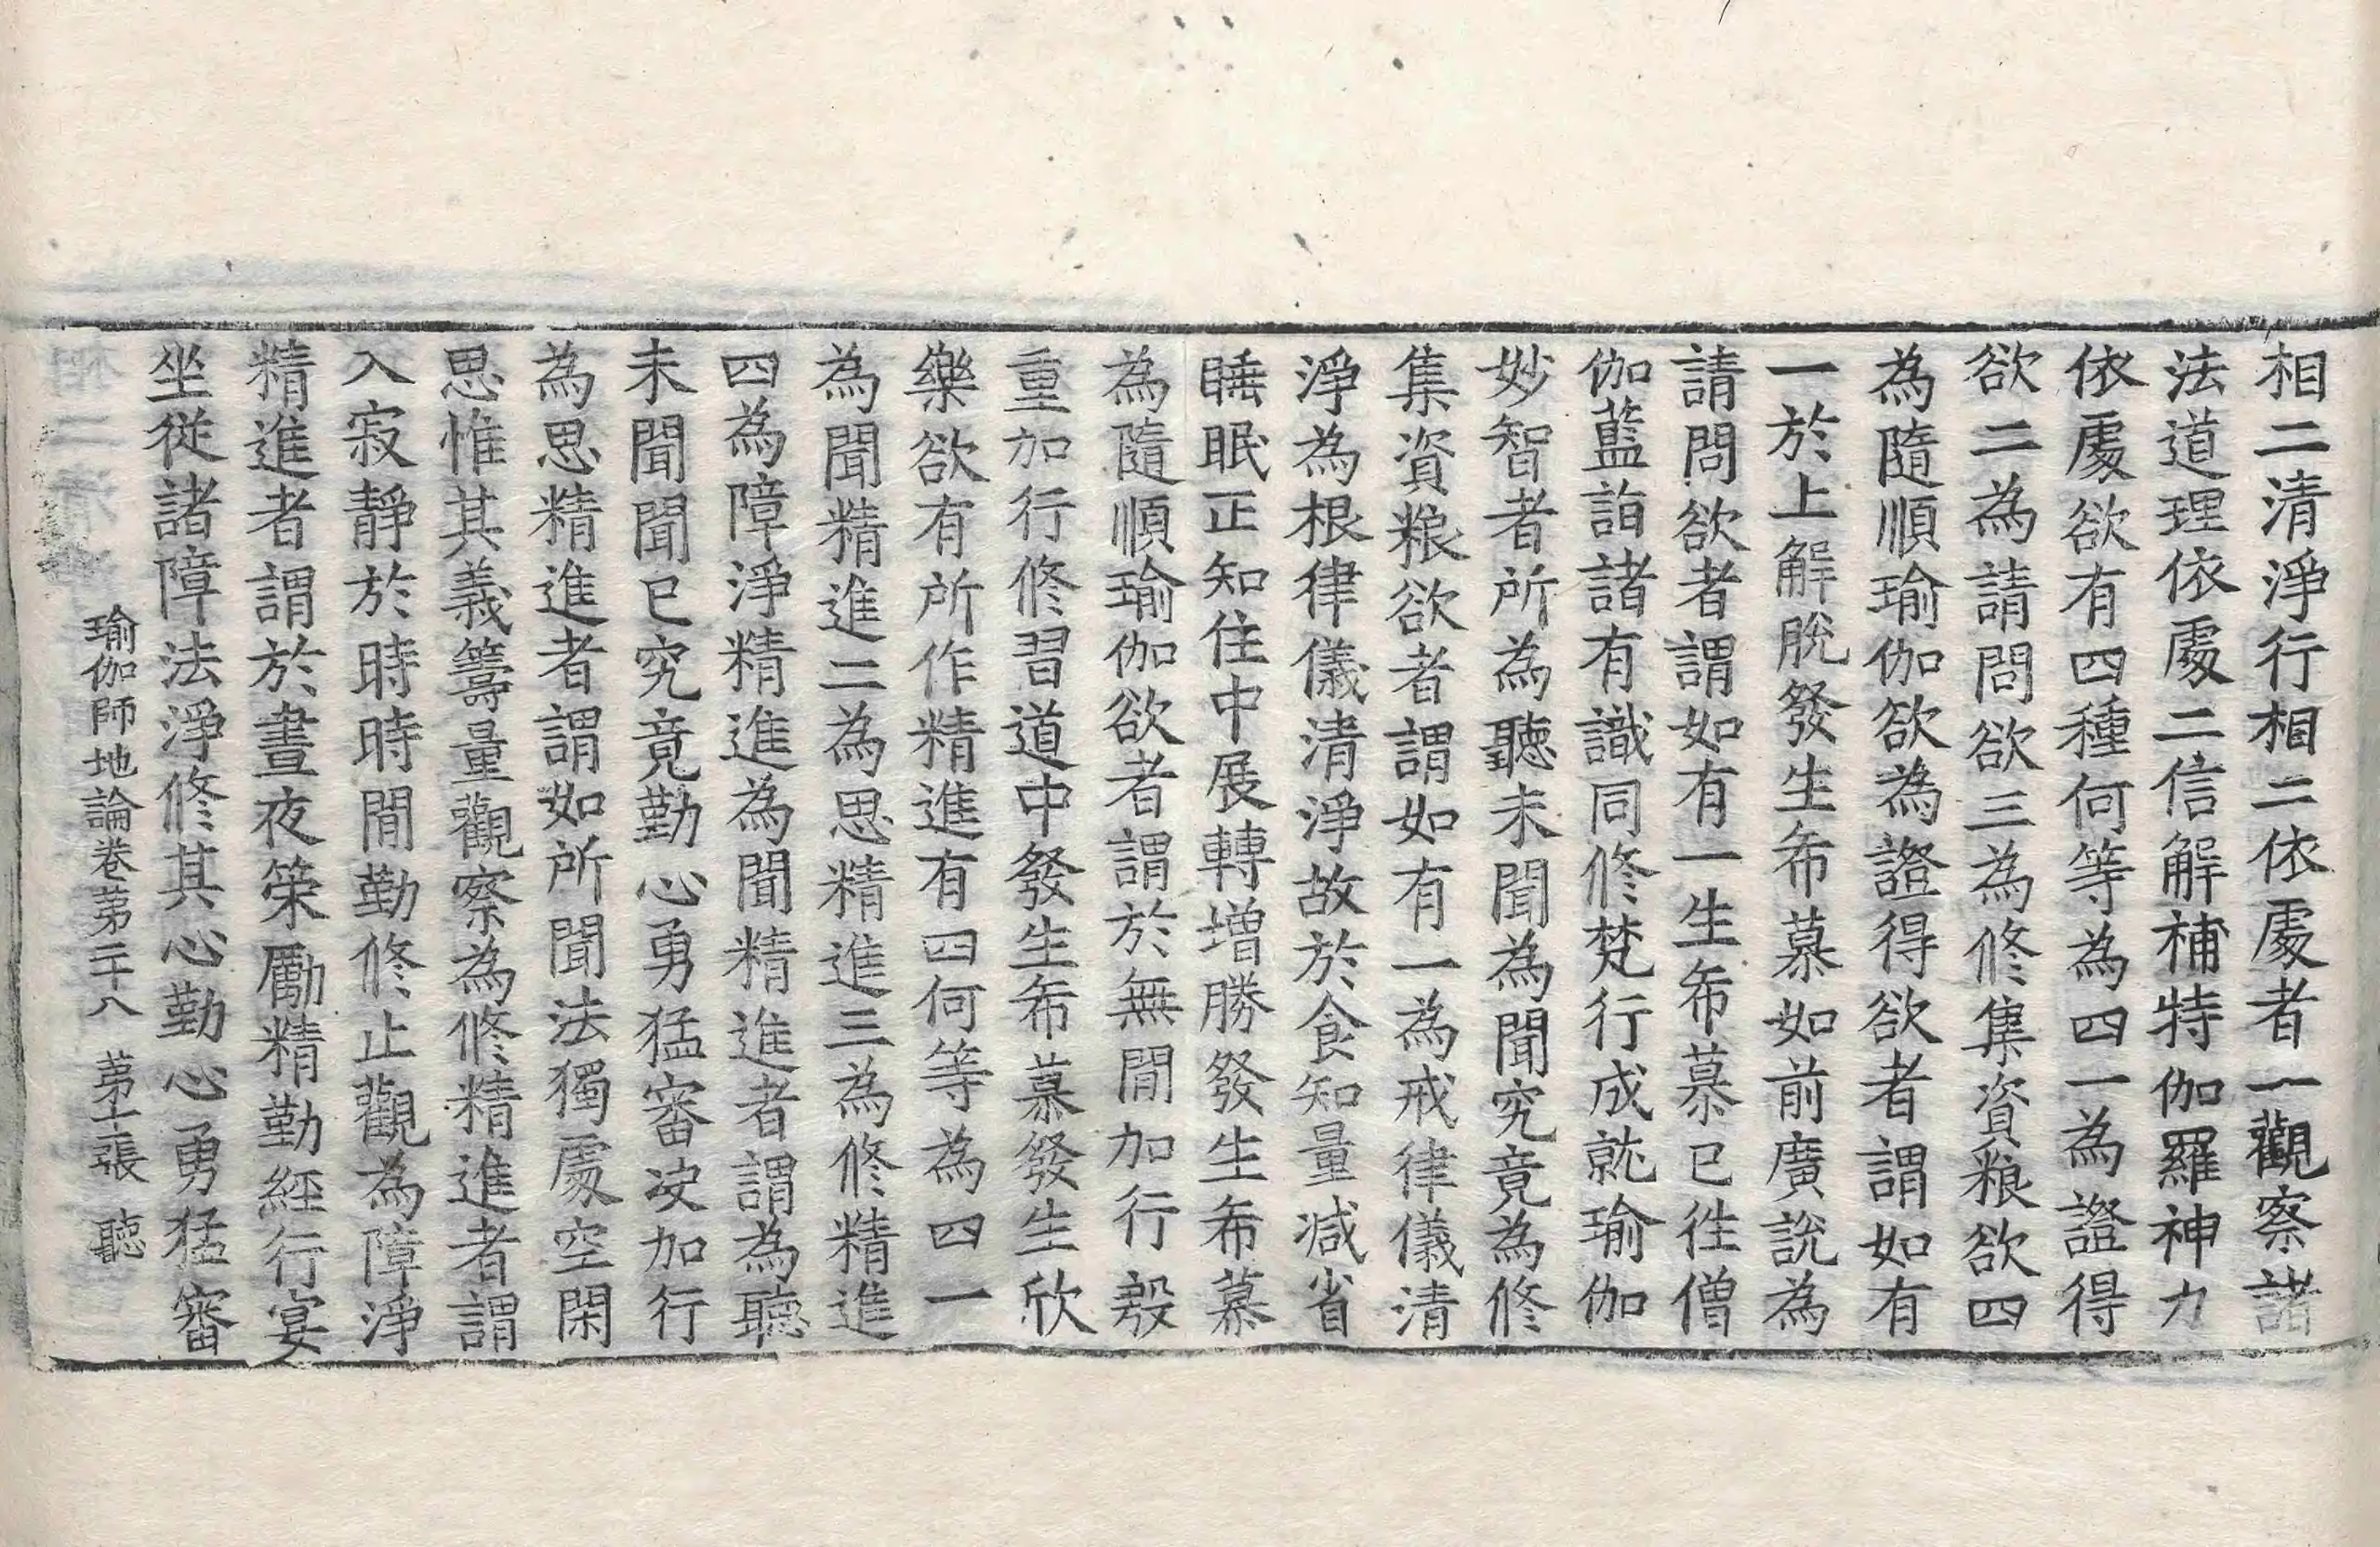 相二清淨行相二依處者一觀察諸
法道理依處二信解補特伽羅神力
依處欲有四種何等為四一為證得
欲二為請問欲三為修集資粮欲四
為隨順瑜伽欲為證得欲者謂如有
一於上解脫發生希慕如前廣說為
請問欲者謂如有一生希慕已往僧
伽藍詣諸有識同修梵行成就瑜伽
妙智者所為聽未聞為聞究竟為修
集資粮欲者謂如有一為戒律儀清
淨為根律儀清淨故於食知量減省
睡眠正知住中展轉增勝發生希慕
為隨順瑜伽欲者謂於無間加行慇
重加行修習道中發生希慕發生欣
樂欲有所作精進有四何等為四一
為聞精進二為思精進三為修精進
四為障淨精進為聞精進者謂為聽
未聞聞已究竟勤心勇猛審決加行
為思精進者謂如所聞法獨處空閑
思惟其義籌量觀察為修精進者謂
入寂靜於時時間勤修止觀為障淨
精進者謂於晝夜策勵精勤經行宴
坐從諸障法淨修其心勤心勇猛審
瑜伽師地論卷苐二十八 苐十張 聽